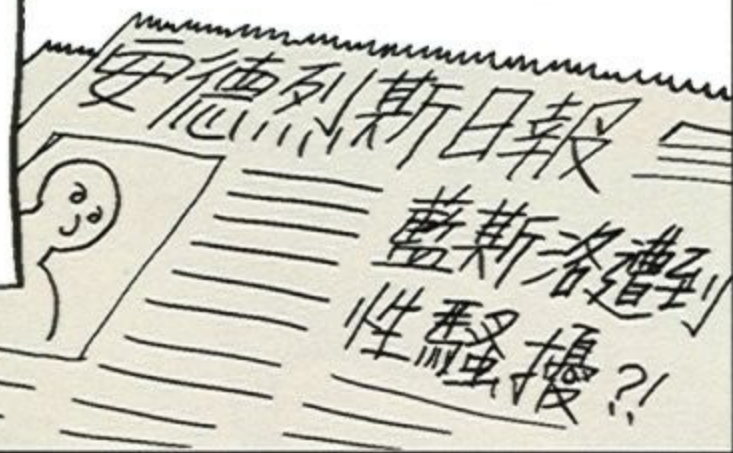 安德烈斯日報
藍斯洛遭到
性騷擾?!